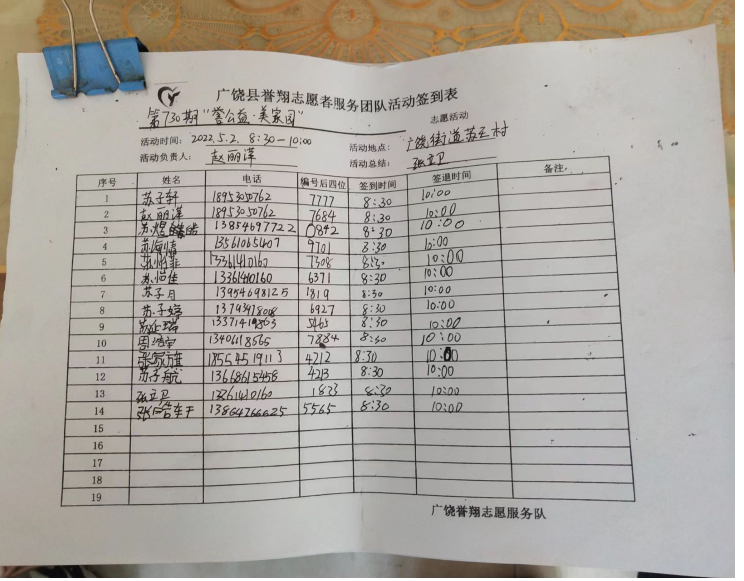 广饶县誉翔志愿者服务团队活动签到表
第730期"誉公益·美家园" 志愿活动
活动时间：2022.5.2. 8:30—10:00 活动地点：广饶街道苏王村
活动负责人：赵丽萍 活动总结：张立卫
序号 姓名 电话 编号后四位 签到时间 签退时间 备注
1 苏子轩 18953050762 7777 8:30 10:00
2 赵丽萍 18953050762 7684 8:30 10:00
3 13854697722 0842 8:30 10:00
4 13561065407 9701 8:30 10:00
5 13361410160 7308 8:30 10:00
6 13361410160 6371 8:30 10:00
7 苏子月 13954698125 1819 8:30 10:00
8 苏子婷 6927 8:30 10:00
9 8:30 10:00
10 13406118565 7884 8:30 10:00
11 18554519113 4212 8:30 10:00
12 苏子航 13668615458 4213 8:30 10:00
13 张立卫 13361410160 1823 8:30 10:00
14 13864766625 5565 8:30 10:00
15
16
17
18
19
广饶誉翔志愿服务队